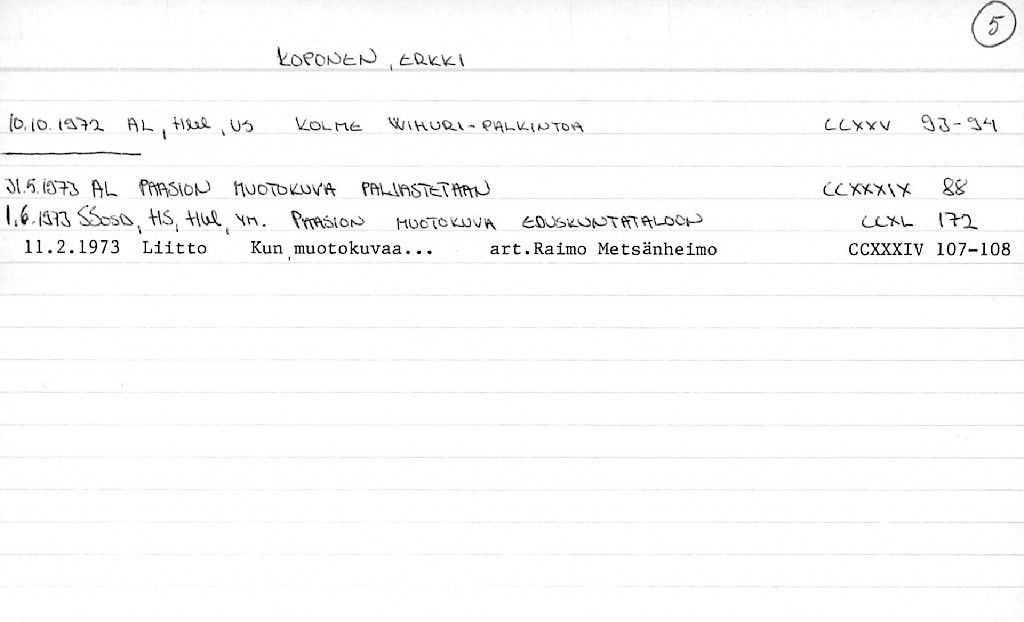 5
KOPONEN, ERKKI
10.10.1972 AL, Hbl, US KOLME WIHURI-PALKINTOA CCXXV 93-94
31.5.1973 AL PAASION MUOTOKUVA PALJASTETAAN CCXXXIX 88
1.6.1973 SSosd, HS, Hbl, YM. PAASION MUOTOKUVA EDUSKUNTATALOON CCXL 172
11.2.1973 Liitto Kun muotokuvaa... art.Raimo Metsänheimo CCXXXIV 107-108